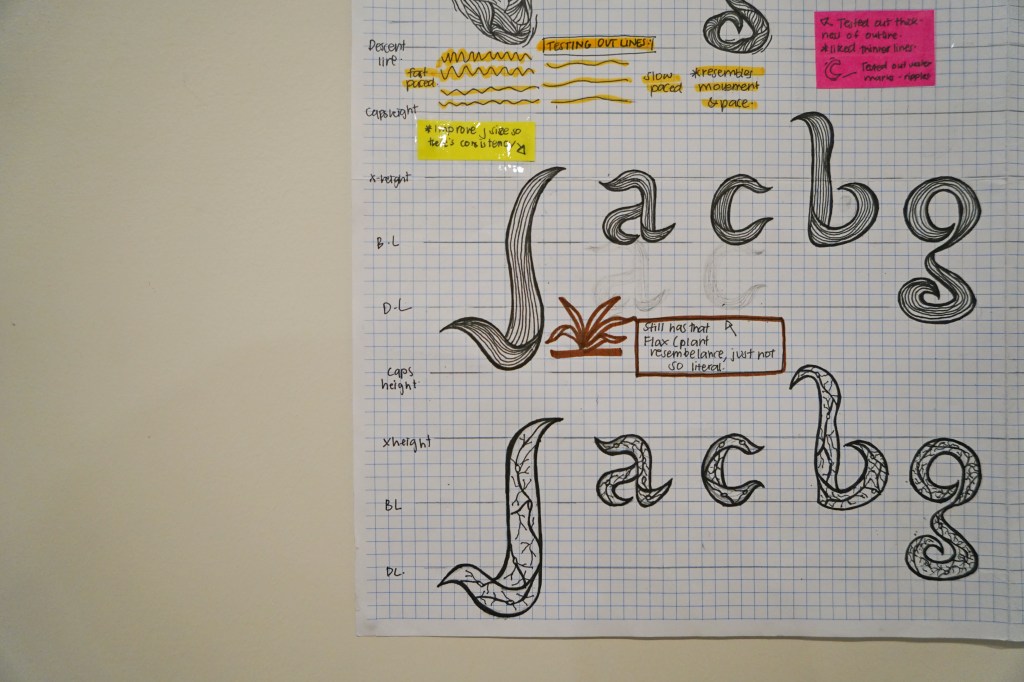 Descent line
TESTING OUT LINES!
fast paced
slow paced
*resembles
movement
& pace.
Tested out thick-
ness of outline.
*liked thinner lines.
Tested out water
marks - ripples
Capsheight
*improve j size so
there's consistency
X-height
J a c b g
B.L
a c
D-L
Still has that
Flax (plant
resembelance, just not
so literal.
caps
height
xheight
J a c b g
BL
DL.